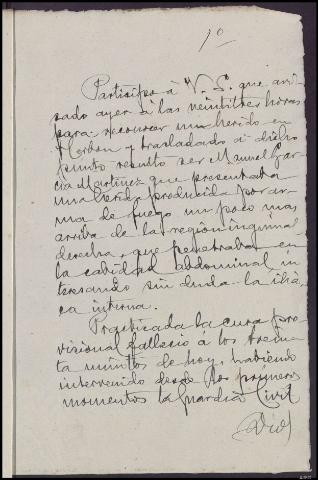 1º
Participo á V. S. que avi-
sado ayer á las veintitres horas
para reconocer un herido en
y trasladado á dicho
punto resultó ser Manuel Gar-
cia Martinez que presentaba
una herida producida por ar-
ma de fuego un poco mas
arriba de la region inguinal
derecha, que penetraba en
la cabidad abdominal in
teresando sin duda la ilia-
ca interna.
Practicada la cura pro-
visional falleció a los trein-
ta minutos de hoy, habiendo
intervenido desde los primeros
momentos la Guardia Civil